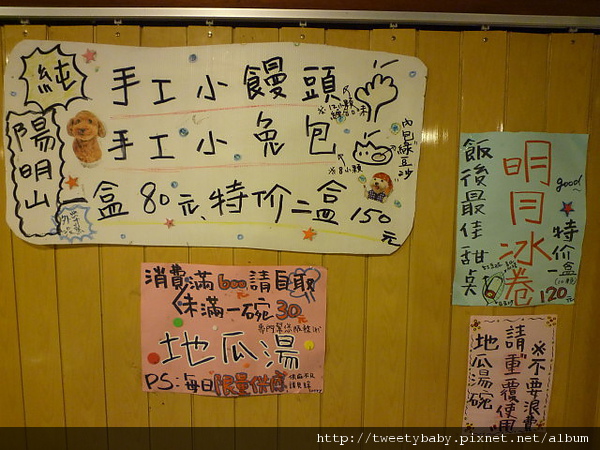 純
陽明山
手工小饅頭
手工小兔包
內包綠豆沙
※8小顆
一盒80元、特价二盒150元
消費滿600元請自取
(未滿一碗30元
地瓜湯
PS:每日限量供應
飯後最佳甜點
明月冰卷
good~
特价一盒
120元
※不要浪費
請"重"覆使用
地瓜湯碗
http://tweetybaby.pixnet.net/album